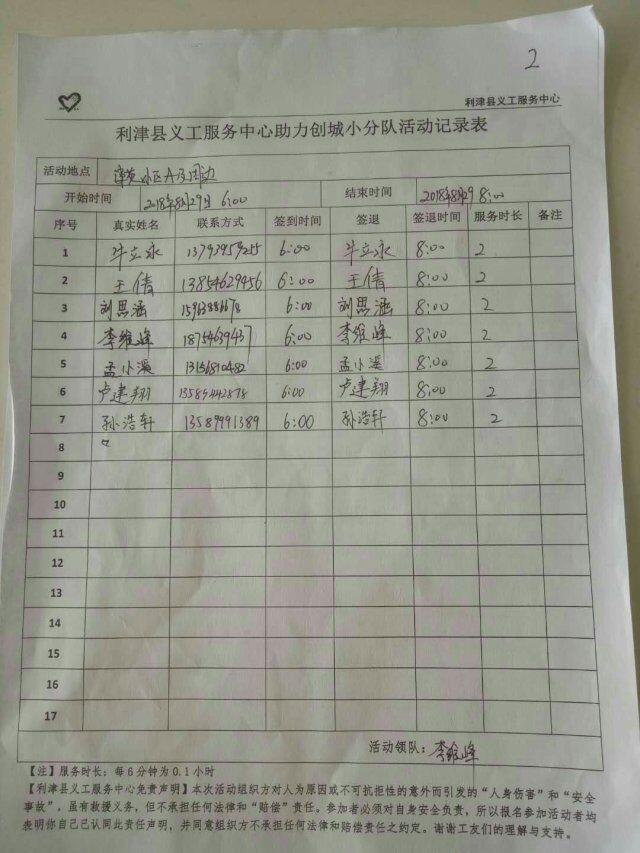 2
利津县义工服务中心
利津县义工服务中心助力创城小分队活动记录表
活动地点 小区A及周边
开始时间 2018年8月29日 6:00 结束时间 2018年8月29 8:00
序号 真实姓名 联系方式 签到时间 签退 签退时间 服务时长 备注
1 牛立永 6:00 牛立永 8:00 2
2 王倩 13854629456 6:00 王倩 8:00 2
3 刘思涵 6:00 刘思涵 8:00 2
4 李维峰 18754639437 6:00 李维峰 8:00 2
5 孟小溪 6:00 孟小溪 8:00 2
6 卢建翔 6:00 卢建翔 8:00 2
7 孙浩轩 13589991389 6:00 孙浩轩 8:00 2
8
9
10
11
12
13
14
15
16
17
活动领队：李维峰
【注】服务时长：每6分钟为0.1小时
【利津县义工服务中心免责声明】本次活动组织方对人为原因或不可抗拒性的意外而引发的“人身伤害”和“安全
事故”，虽有救援义务，但不承担任何法律和“赔偿”责任。参加者必须对自身安全负责，所以报名参加活动者均
表明你自己已认同此责任声明，并同意组织方不承担任何法律和赔偿责任之约定。谢谢工友们的理解与支持。